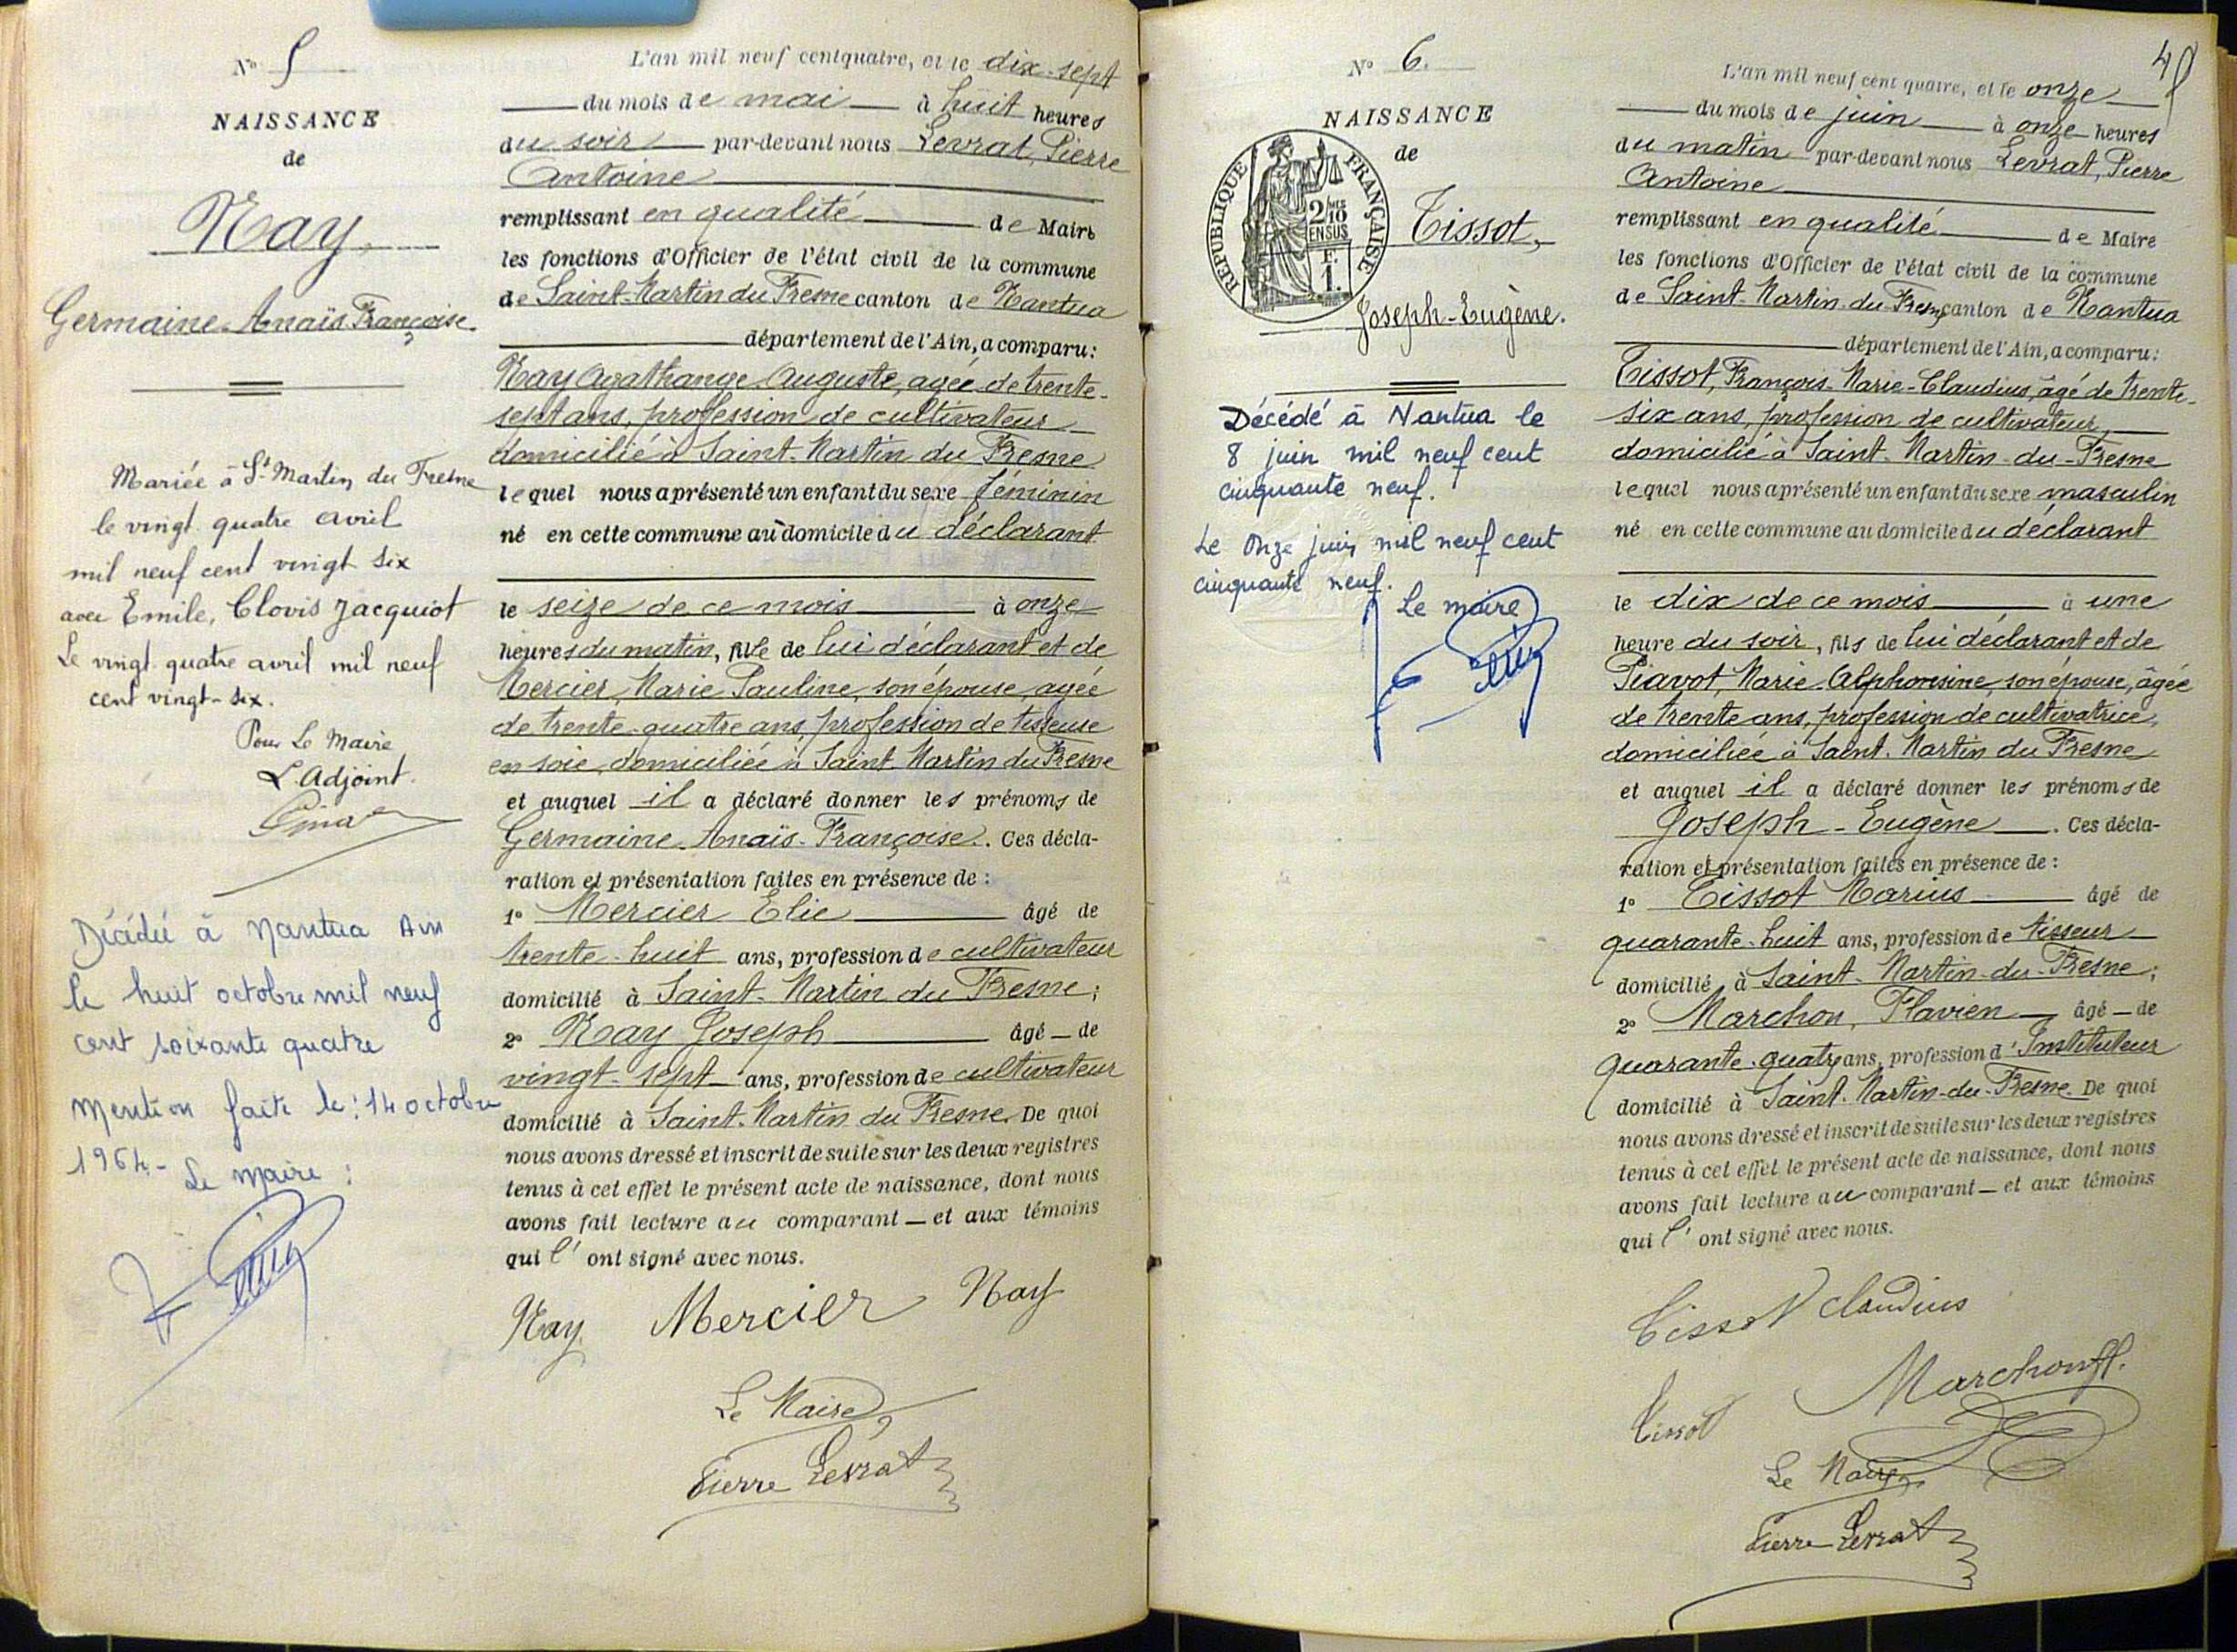 N° 5
NAISSANCE
de
Nay,
Germaine-Anaïs Françoise.
Mariée à St Martin du Fresne
le vingt quatre avril
mil neuf cent vingt six
avec Emile, Clovis Jacquiot
Le vingt quatre avril mil neuf
cent vingt-six.
Pour Le Maire
L'Adjoint.
Décédée à Nantua Ain
le huit octobre mil neuf
cent soixante quatre
Mention faite le : 14 octobre
1964.- Le Maire :
L'an mil neuf cent quatre, et le dix-sept
du mois de mai à huit heures
du soir par-devant nous Levrat, Pierre
Antoine
remplissant en qualité de Maire
les fonctions d'Officier de l'état civil de la commune
de Saint-Martin du Fresne canton de Nantua
département de l'Ain, a comparu :
Nay Agathange Auguste, agée de trente-
sept ans, profession de cultivateur
domicilié à Saint-Martin du Fresne
lequel nous a présenté un enfant du sexe féminin
né en cette commune au domicile du déclarant
le seize de ce mois à onze
heures du matin, fille de lui déclarant et de
Mercier, Marie Pauline, son épouse, agée
de trente-quatre ans, profession de tisseuse
en soie, domiciliée à Saint-Martin du Fresne
et auquel il a déclaré donner les prénoms de
Germaine-Anaïs-Françoise. Ces décla-
ration et présentation faites en présence de :
1° Mercier Elie âgé de
trente-huit ans, profession de cultivateur
domicilié à Saint-Martin du Fresne ;
2° Nay Joseph âgé de
vingt-sept ans, profession de cultivateur
domicilié à Saint-Martin du Fresne. De quoi
nous avons dressé et inscrit de suite sur les deux registres
tenus à cet effet le présent acte de naissance, dont nous
avons fait lecture au comparant et aux témoins
qui l'ont signé avec nous.
Nay Mercier Nay
Le Maire,
Pierre Levrat
48
N° 6.
NAISSANCE
de
RÉPUBLIQUE FRANÇAISE
2/10
EN SUS
F.
1.
Tissot,
Joseph-Eugène.
Décédé à Nantua le
8 juin mil neuf cent
cinquante neuf.
Le onze juin mil neuf cent
cinquante neuf.
Le maire
L'an mil neuf cent quatre, et le onze
du mois de juin à onze heures
du matin par-devant nous Levrat, Pierre
Antoine
remplissant en qualité de Maire
les fonctions d'Officier de l'état civil de la commune
de Saint-Martin-du-Fresne canton de Nantua
département de l'Ain, a comparu :
Tissot, François-Marie-Claudius, âgé de trente-
six ans, profession de cultivateur,
domicilié à Saint-Martin-du-Fresne
lequel nous a présenté un enfant du sexe masculin
né en cette commune au domicile du déclarant
le dix de ce mois à une
heure du soir, fils de lui déclarant et de
Piavot, Marie-Alphonsine, son épouse, âgée
de trente ans, profession de cultivatrice,
domiciliée à Saint-Martin du Fresne
et auquel il a déclaré donner les prénoms de
Joseph-Eugène. Ces décla-
ration et présentation faites en présence de :
1° Tissot Marius âgé de
quarante-huit ans, profession de tisseur
domicilié à Saint-Martin-du-Fresne ;
2° Marchon, Flavien, âgé de
quarante-quatre ans, profession d'Instituteur
domicilié à Saint-Martin-du-Fresne. De quoi
nous avons dressé et inscrit de suite sur les deux registres
tenus à cet effet le présent acte de naissance, dont nous
avons fait lecture au comparant et aux témoins
qui l'ont signé avec nous.
Tissot Claudius
Marchon Fl.
Tissot
Le Maire,
Pierre Levrat